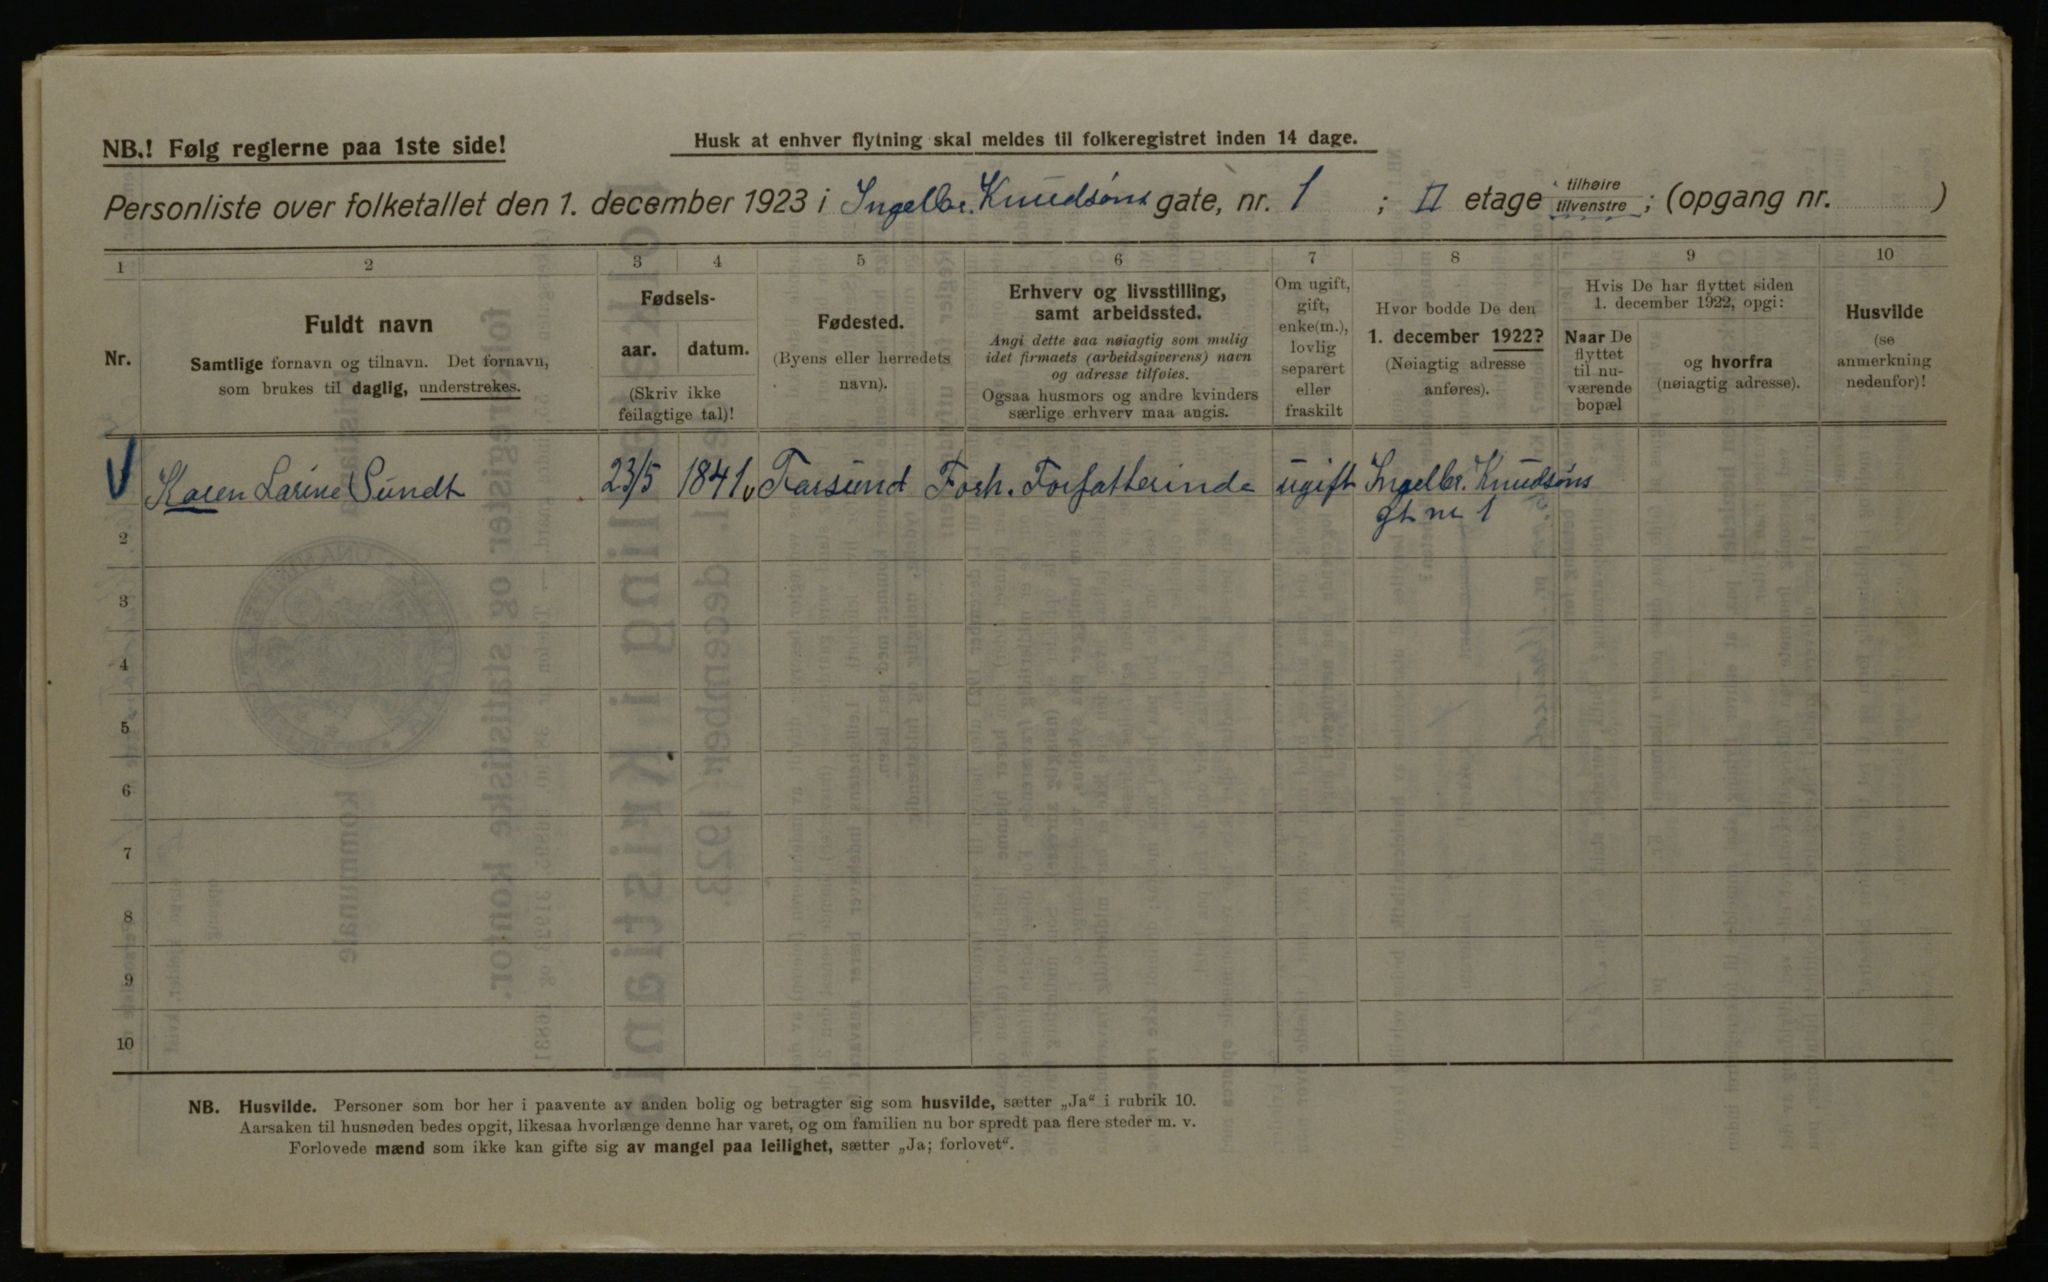 NB.! Følg reglerne paa 1ste side!
Husk at enhver flytning skal meldes til folkeregistret inden 14 dage.
Personliste over folketallet den 1. december 1923 i Ingelbr. Knudsøns gate, nr. 1 ; II etage tilhøire tilvenstre ; (opgang nr. )
1 2 3 4 5 6 7 8 9 10
Nr.
Fuldt navn
Samtlige fornavn og tilnavn. Det fornavn,
som brukes til daglig, understrekes.
Fødsels-
aar. datum.
(Skriv ikke
feilagtige tal)!
Fødested.
(Byens eller herredets
navn).
Erhverv og livsstilling,
samt arbeidssted.
Angi dette saa nøiagtig som mulig
idet firmaets (arbeidsgiverens) navn
og adresse tilføies.
Ogsaa husmors og andre kvinders
særlige erhverv maa angis.
Om ugift,
gift,
enke(m.),
lovlig
separert
eller
fraskilt
Hvor bodde De den
1. december 1922?
(Nøiagtig adresse
anføres).
Hvis De har flyttet siden
1. december 1922, opgi:
Naar De
flyttet
til nu-
værende
bopæl
og hvorfra
(nøiagtig adresse).
Husvilde
(se
anmerkning
nedenfor)!
Karen Larine Sundt 23/5 1841 Farsund Forh. Forfatterinde ugift Ingelbr. Knudsøns
gt nr 1
2
3
4
5
6
7
8
9
10
NB. Husvilde. Personer som bor her i paavente av anden bolig og betragter sig som husvilde, sætter „Ja“ i rubrik 10.
Aarsaken til husnøden bedes opgit, likesaa hvorlænge denne har varet, og om familien nu bor spredt paa flere steder m. v.
Forlovede mænd som ikke kan gifte sig av mangel paa leilighet, sætter „Ja; forlovet“.